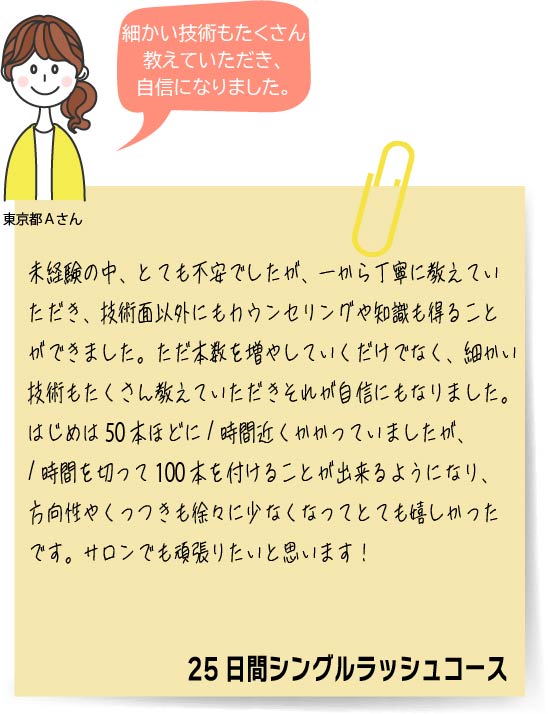 細かい技術もたくさん
教えていただき、
自信になりました。
東京都Aさん
未経験の中、とても不安でしたが、一から丁寧に教えてい
ただき、技術面以外にもカウンセリングや知識も得ること
ができました。ただ本数を増やしていくだけでなく、細かい
技術もたくさん教えていただきそれが自信にもなりました。
はじめは50本ほどに1時間近くかかっていましたが、
1時間を切って100本を付けることが出来るようになり、
方向性やくっつきも徐々に少なくなってとても嬉しかった
です。サロンでも頑張りたいと思います！
25日間シングルラッシュコース